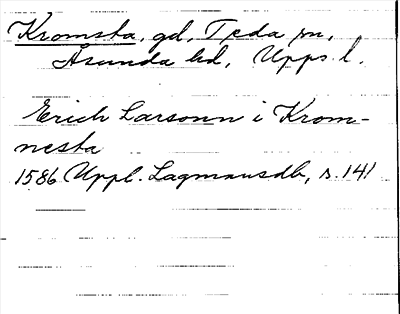 Kromsta, gd, Teda sn,
Åsunda hd, Upps. l.
Erich Larsonn i Krom-
nesta
1586 Uppl. Lagmansdb, s. 141